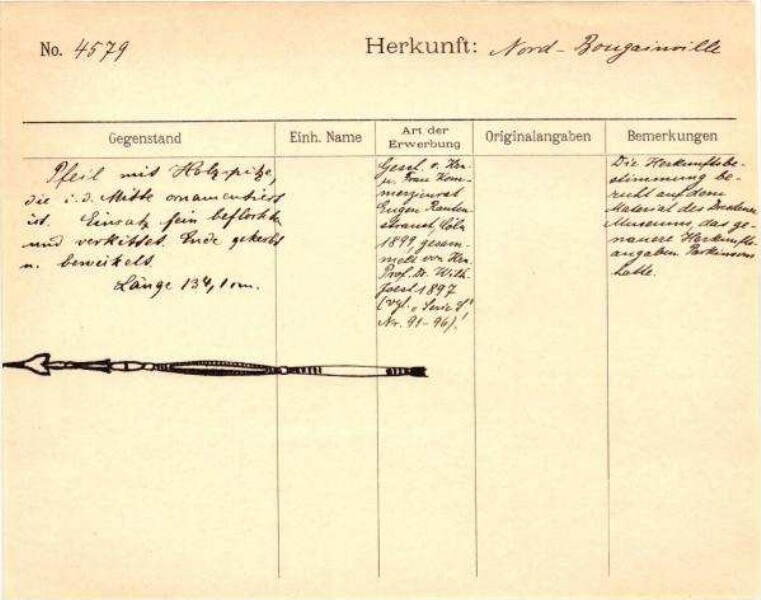 No. 4579
Herkunft: Nord-Bougainville
Gegenstand
Einh. Name
Art der
Erwerbung
Originalangaben
Bemerkungen
Pfeil mit Holzspitze,
die i. d. Mitte ornamentiert
ist. Einsatz fein beflochten
und verkittet. Ende gekerbt
u. bewickelt.
Länge 134,1 cm.
Gesch. v. Hrn
u. Frau Kom-
merzienrat
Eugen Rauten-
strauch, Cöln
1899, gesam-
melt von Hrn.
Prof. Dr. Wilh.
Joest 1897
(vgl. "Serie S"
Nr. 91-96)!
Die Herkunftsbe-
stimmung be-
ruht auf dem
Material des Dresdener
Museums, das ge-
nauere Herkunfts-
angaben Parkinsons
hatte.